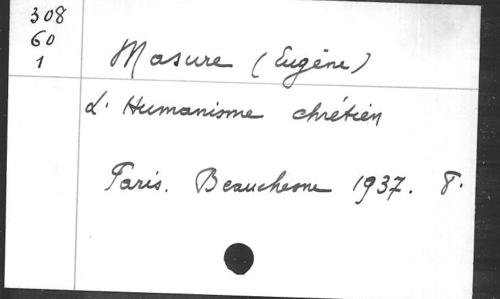 308
60
1
Masure (Eugène)
L'Humanisme chrétien
Paris. Beauchesne 1937. 8°